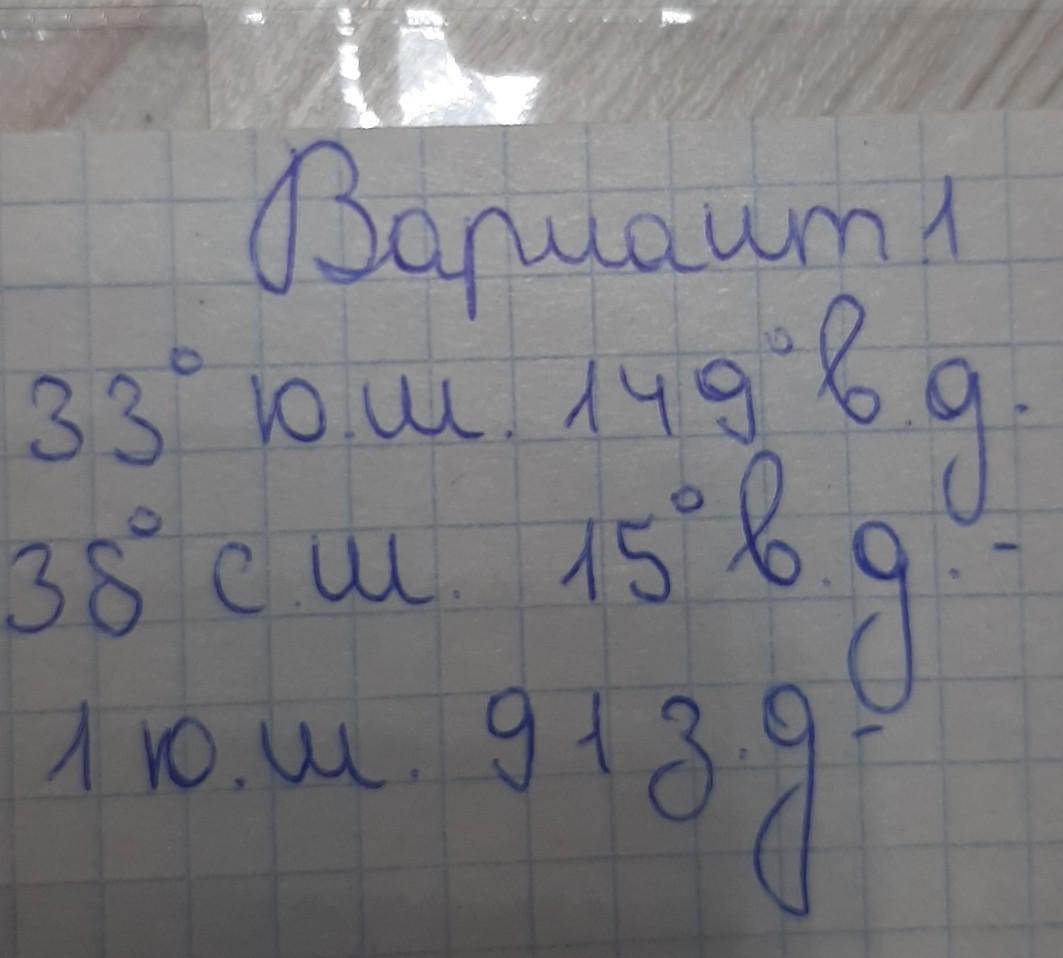 Вариант 1
33° ю.ш. 149° в.д.
38° с.ш. 15° в.д. -
1 ю.ш. 91 з.д -